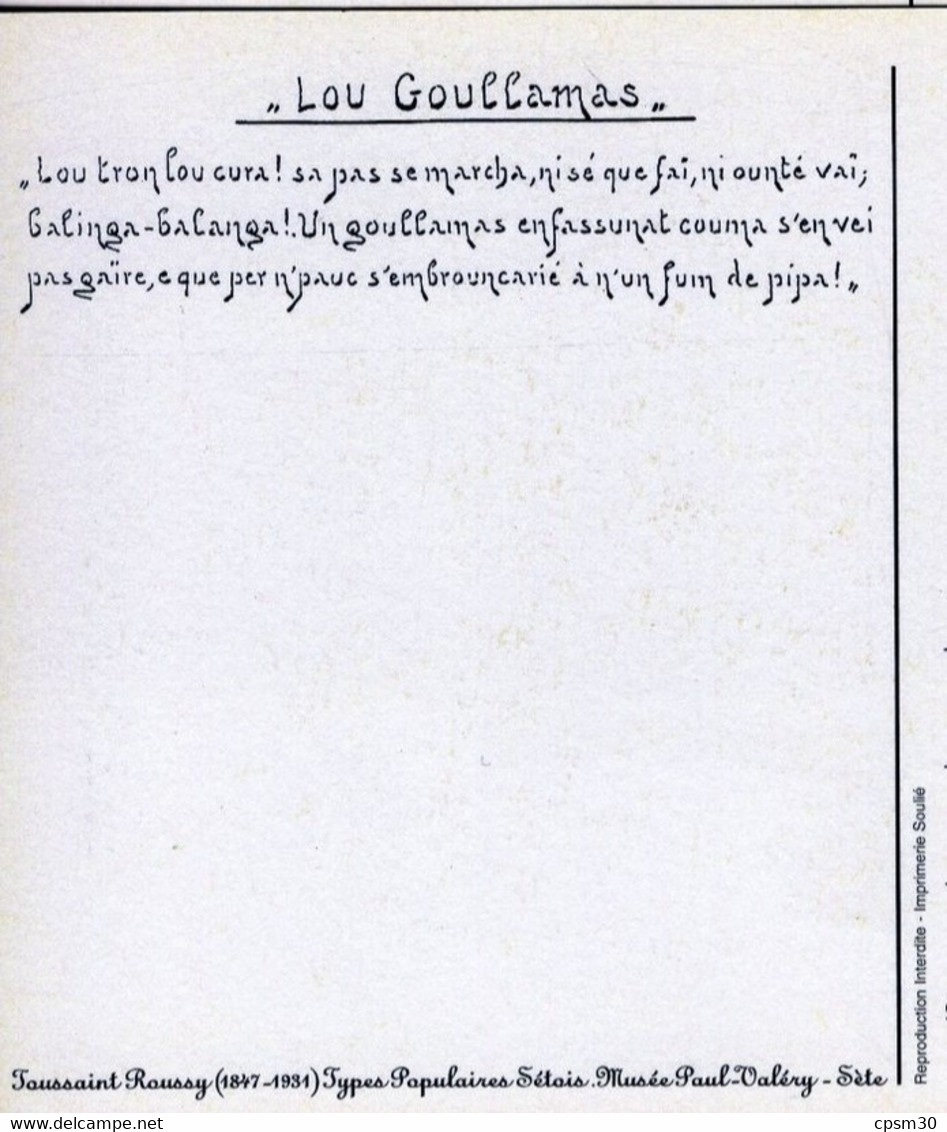 „ Lou Goullamas „
„ Lou tron lou cura! sa pas se marcha, ni sé que faï, ni ounté vaï;
balinga-balanga!. Un goullamas enfassunat couma s'en vei
pas gaïre, e que per n'pauc s'embrouncarié à n'un fum de pipa! „
Toussaint Roussy (1847-1931) Types Populaires Sétois. Musée Paul-Valéry - Sète
Reproduction Interdite - Imprimerie Soulié
cpsm30